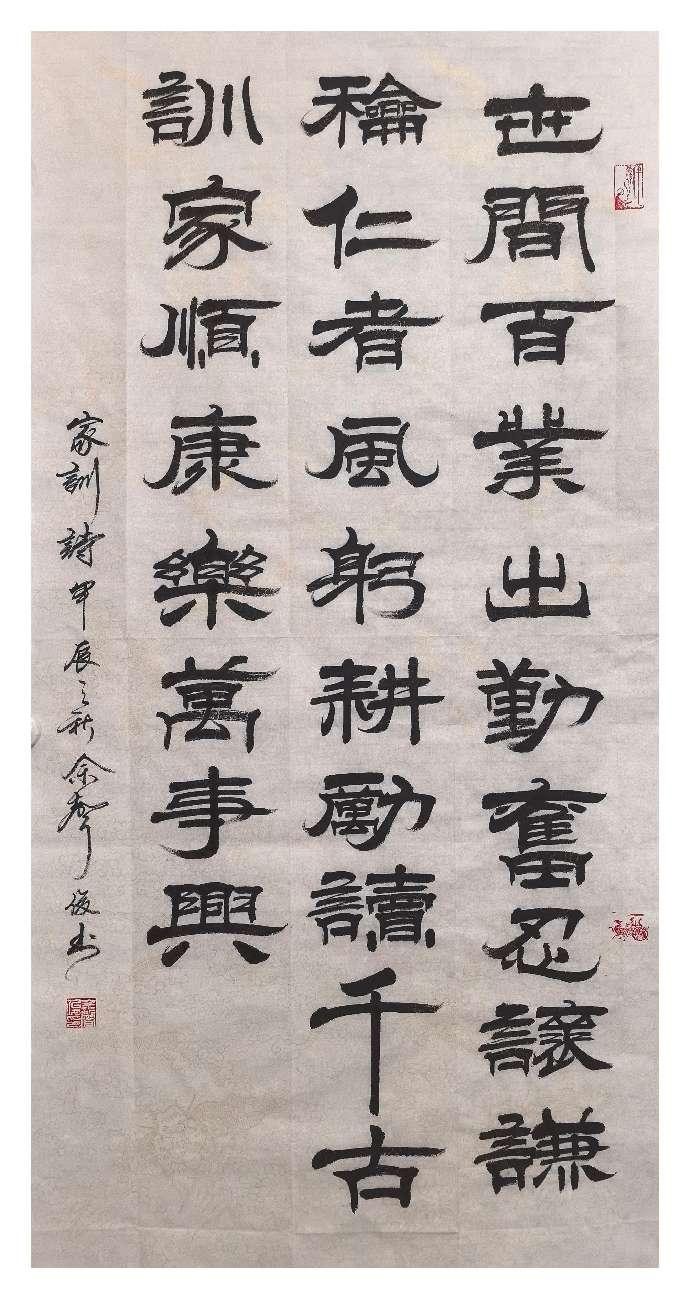 世間百業出勤奮忍讓謙
龢仁者風躬耕勵讀千古
訓家順康樂萬事興
家訓詩甲辰之秋余聲俊书